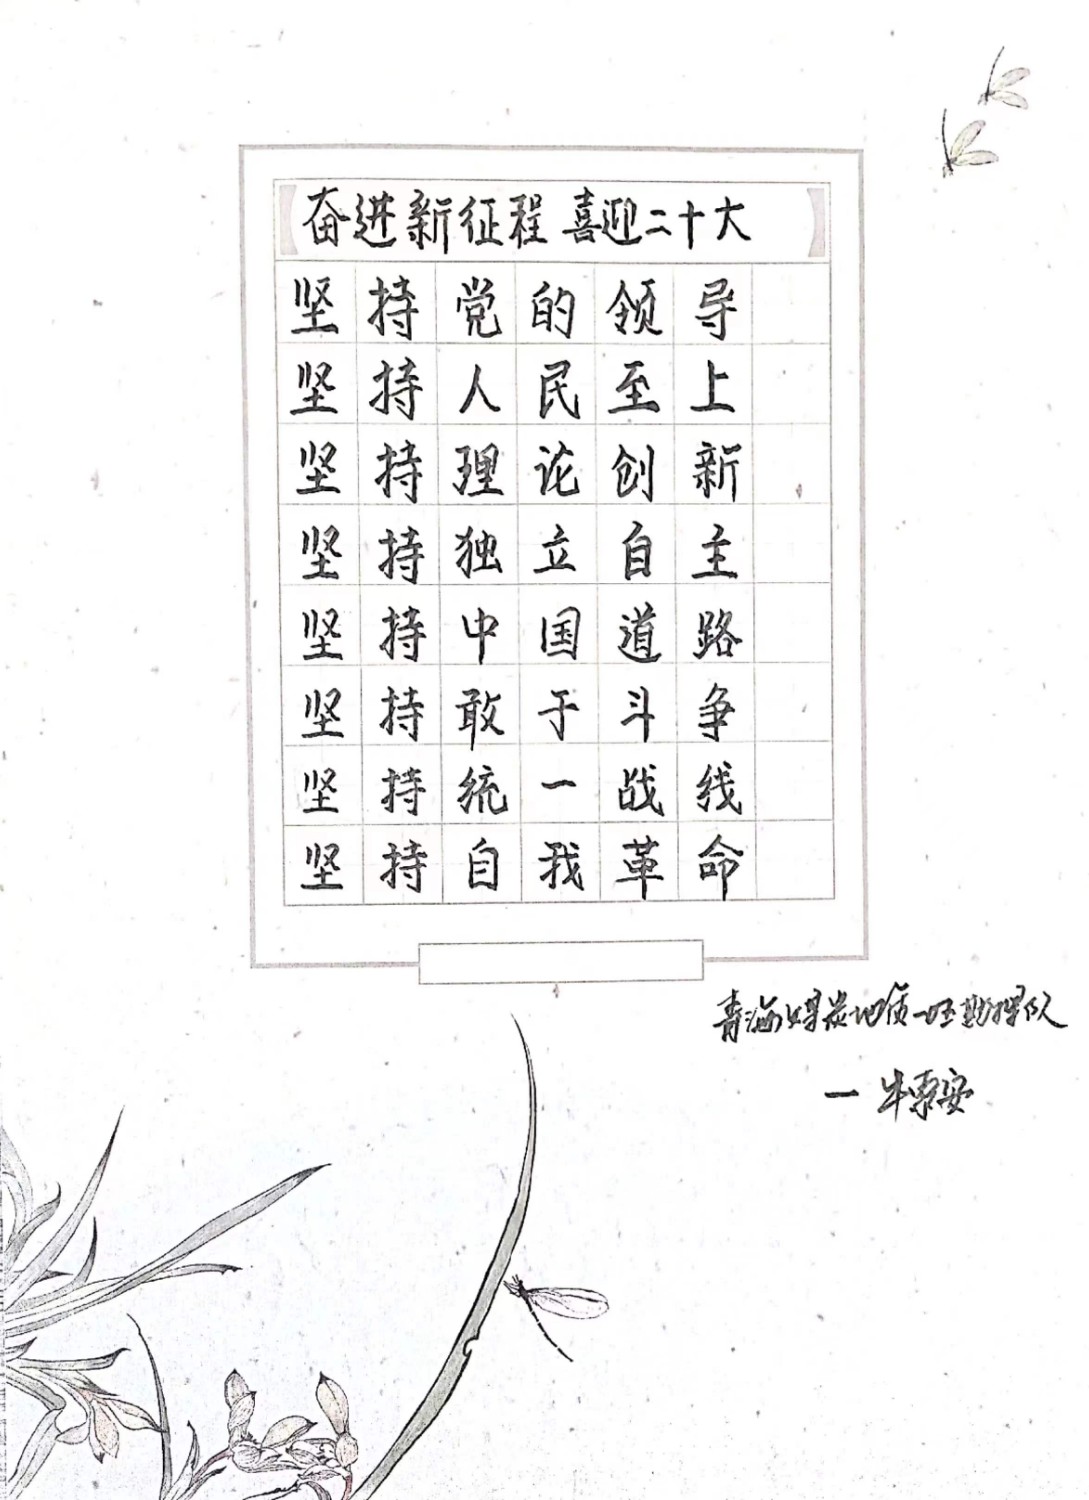 奋进新征程 喜迎二十大
坚持党的领导
坚持人民至上
坚持理论创新
坚持独立自主
坚持中国道路
坚持敢于斗争
坚持统一战线
坚持自我革命
青海煤炭地质一〇五勘探队
一 牛惠安